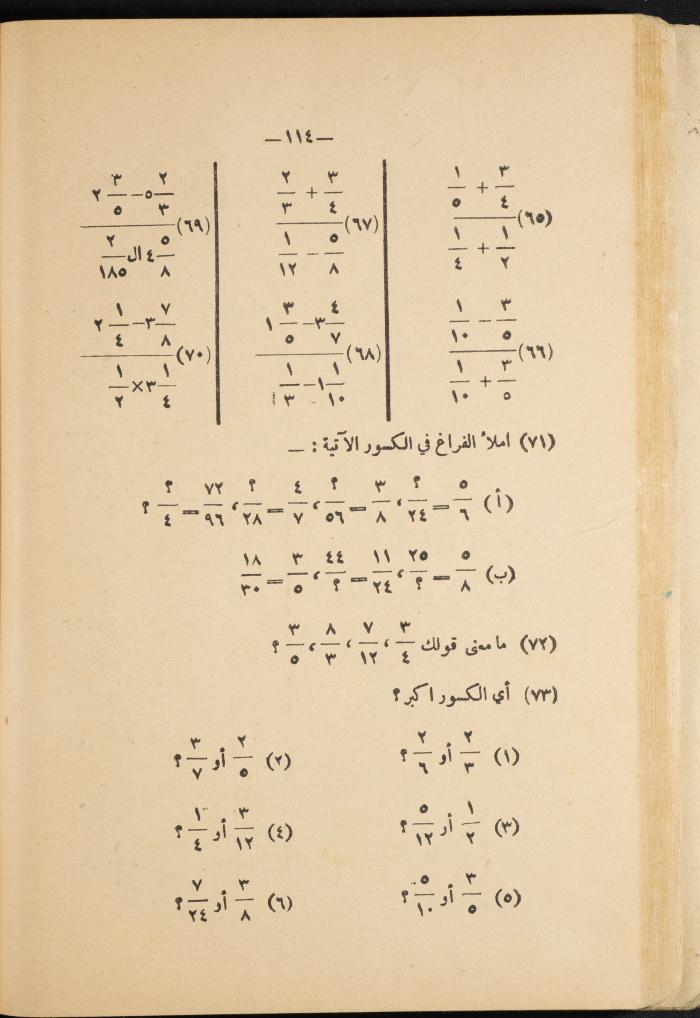 — ١١٤ —
(٦٥) (٣/٤ + ١/٥) / (١/٢ + ١/٤)
(٦٦) (٣/٥ − ١/١٠) / (٣/٥ + ١/١٠)
(٦٧) (٣/٤ + ٢/٣) / (٥/٨ − ١/١٢)
(٦٨) (٣ ٤/٧ − ١ ٣/٥) / (١ ١/١٠ − ١/٣)
(٦٩) (٥ ٢/٣ − ٢ ٣/٥) / (٤ ٥/٨ ال ٢/١٨٥)
(٧٠) (٣ ٧/٨ − ٢ ١/٤) / (٣ ١/٤ × ١/٢)
(٧١) املأ الفراغ في الكسور الآتية : —
(أ) ٥/٦ = ؟/٢٤ ، ٣/٨ = ؟/٥٦ ، ٤/٧ = ؟/٢٨ ، ٧٢/٩٦ = ؟/٤ ؟
(ب) ٥/٨ = ٢٥/؟ ، ١١/٢٤ = ٤٤/؟ ، ٣/٥ = ١٨/٣٠
(٧٢) ما معنى قولك ٣/٤ ، ٧/١٢ ، ٨/٣ ، ٣/٥ ؟
(٧٣) أي الكسور اكبر ؟
(١) ٢/٣ أو ٢/٦ ؟
(٢) ٢/٥ أو ٣/٧ ؟
(٣) ١/٢ أر ٥/١٢ ؟
(٤) ٣/١٢ أو ١/٤ ؟
(٥) ٣/٥ أو ٥/١٠ ؟
(٦) ٣/٨ أو ٧/٢٤ ؟